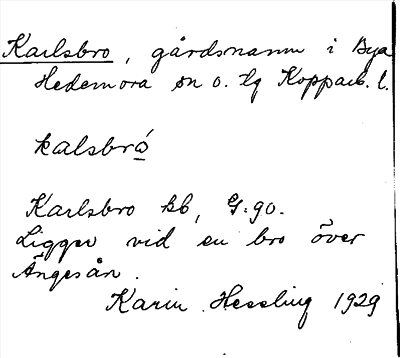 Karlsbro, gårdsnamn i Bya
Hedemora sn o. tg Kopparb. l.
kalsbró
Karlsbro kb, G:90.
Ligger vid en bro över
Ängesån.
Karin Hessling 1929